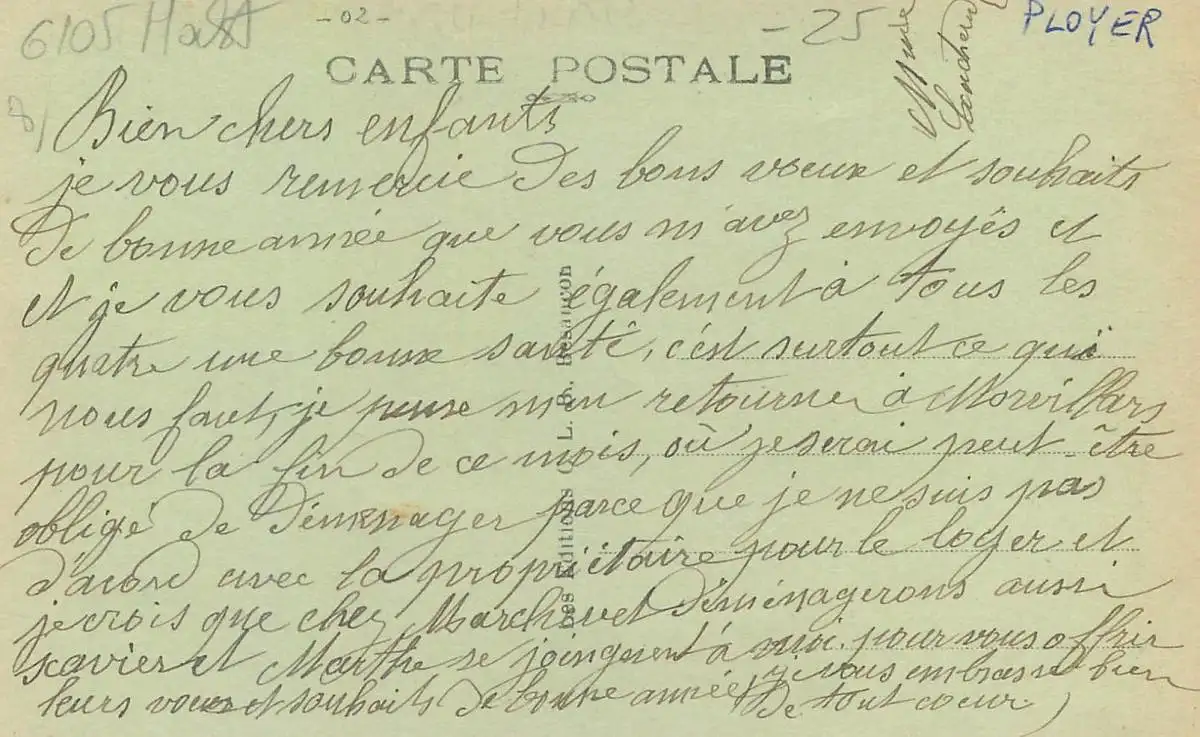 6105
- 02 -
- 25
Mme
PLOYER
CARTE POSTALE
8/
Bien chers enfants
je vous remercie des bons voeux et souhaits
de bonne année que vous m'avez envoyés et
et je vous souhaite également à tous les
quatre une bonne santé, c'est surtout ce qui
nous faut, je pense m'en retourner à Morvillars
pour la fin de ce mois, où je serai peut-être
obligé de déménager parce que je ne suis pas
d'acord avec la propriétaire pour le loger et
je crois que chez Marchivet déménagerons aussi
xavier et Marthe se joingnent à moi pour vous offrir
leurs voeux et souhaits de bonne année, je vous embrasse bien
de tout coeur
Les Editions C. L. B. Besançon